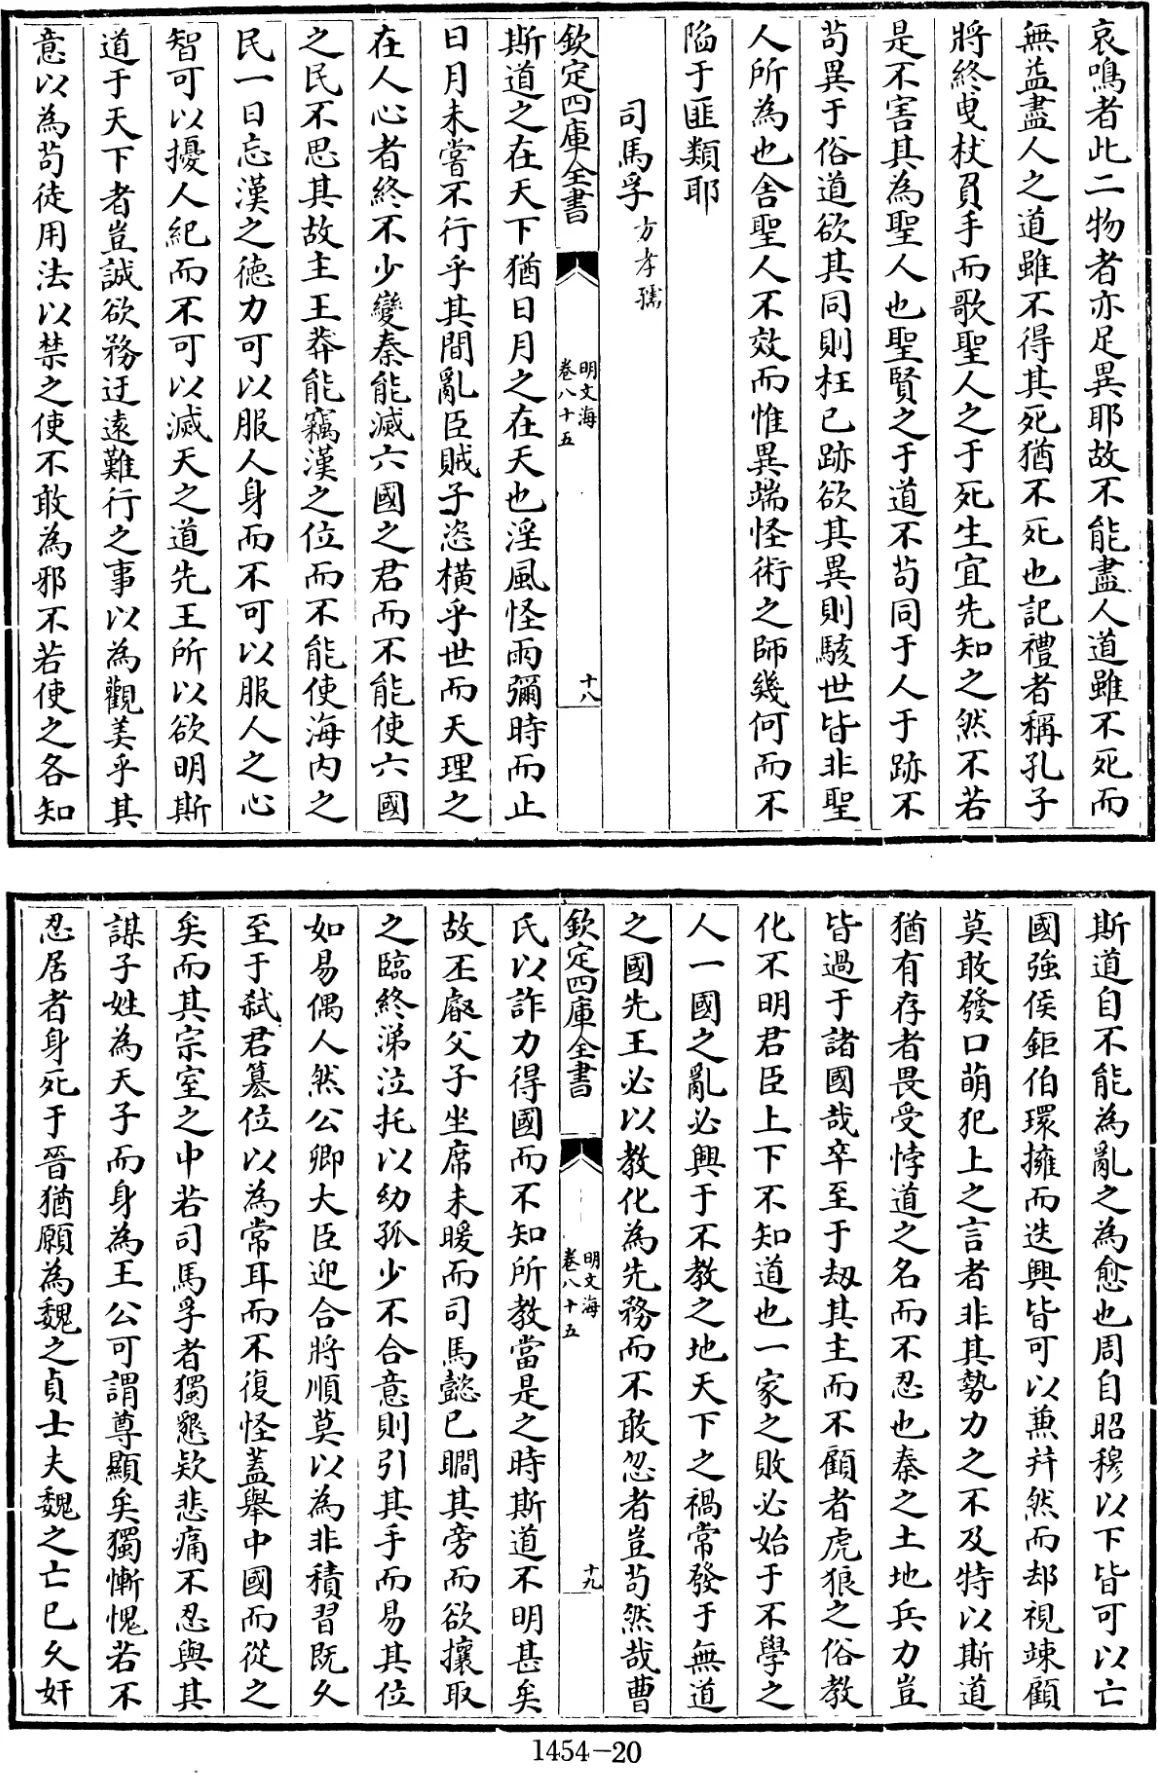 哀鳴者此二物者亦足異耶故不能盡人道雖不死而
無益盡人之道雖不得其死猶不死也記禮者稱孔子
將終曳杖負手而歌聖人之于死生宜先知之然不若
是不害其為聖人也聖賢之于道不苟同于人于跡不
苟異于俗道欲其同則枉已跡欲其異則駭世皆非聖
人所為也舍聖人不效而惟異端怪術之師幾何而不
陷于匪類耶
司馬孚 方孝孺
欽定四庫全書
明文海
卷八十五
十八
斯道之在天下猶日月之在天也淫風怪雨彌時而止
日月未嘗不行乎其間亂臣賊子恣橫乎世而天理之
在人心者終不少變秦能滅六國之君而不能使六國
之民不思其故主王莽能竊漢之位而不能使海内之
民一日忘漢之德力可以服人身而不可以服人之心
智可以擾人紀而不可以滅天之道先王所以欲明斯
道于天下者豈誠欲務迂遠難行之事以為觀美乎其
意以為苟徒用法以禁之使不敢為邪不若使之各知
斯道自不能為亂之為愈也周自昭穆以下皆可以亡
國強侯鉅伯環擁而迭興皆可以兼并然而却視竦顧
莫敢發口萌犯上之言者非其勢力之不及特以斯道
猶有存者畏受悖道之名而不忍也秦之土地兵力豈
皆過于諸國哉卒至于刼其主而不顧者虎狼之俗教
化不明君臣上下不知道也一家之敗必始于不學之
人一國之亂必興于不教之地天下之禍常發于無道
之國先王必以教化為先務而不敢忽者豈苟然哉曹
欽定四庫全書
明文海
卷八十五
十九
氏以詐力得國而不知所教當是之時斯道不明甚矣
故丕叡父子坐席未暖而司馬懿已瞷其旁而欲攘取
之臨終涕泣托以幼孤少不合意則引其手而易其位
如易偶人然公卿大臣迎合將順莫以為非積習既久
至于弑君簒位以為常耳而不復怪蓋舉中國而從之
矣而其宗室之中若司馬孚者獨懇欵悲痛不忍與其
謀子姓為天子而身為王公可謂尊顯矣獨慚愧若不
忍居者身死于晉猶願為魏之貞士夫魏之亡已久奸
1454—20